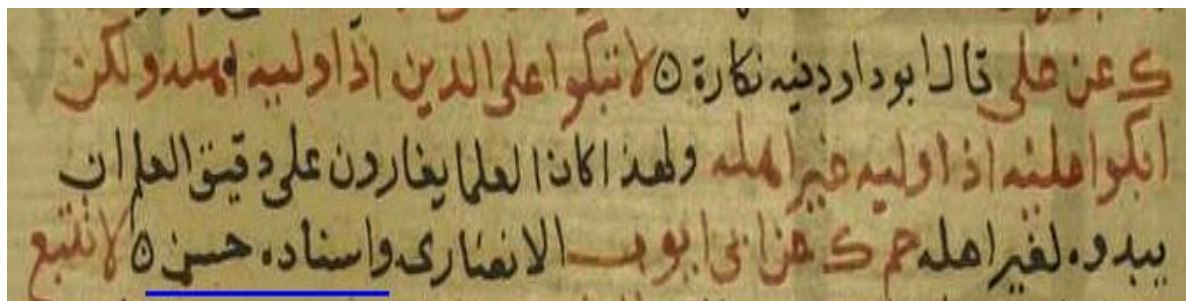 ك عن علي قال ابو داود فيه نكارة ٥ لا تبكوا على الدين اذا وليه اهله ولكن
ابكوا عليه اذا وليه غير اهله ولهذا كان العلما يغارون على دقيق العلم ان
يبدوه لغير اهله حم ك عن ابي ايوب الانصاري واسناده حسن ٥ لا تتبع